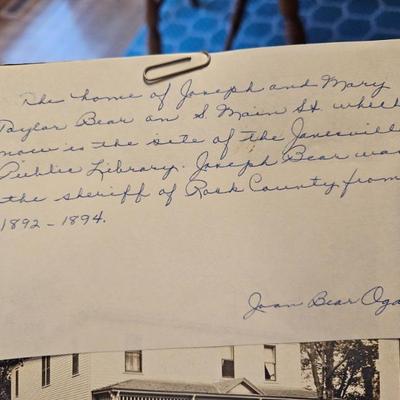 The home of Joseph and Mary
Taylor Bear on S. Main St which
now is the site of the Janesville
Public Library. Joseph Bear was
the sheriff of Rock County from
1892 - 1894.
Joan Bear Oga